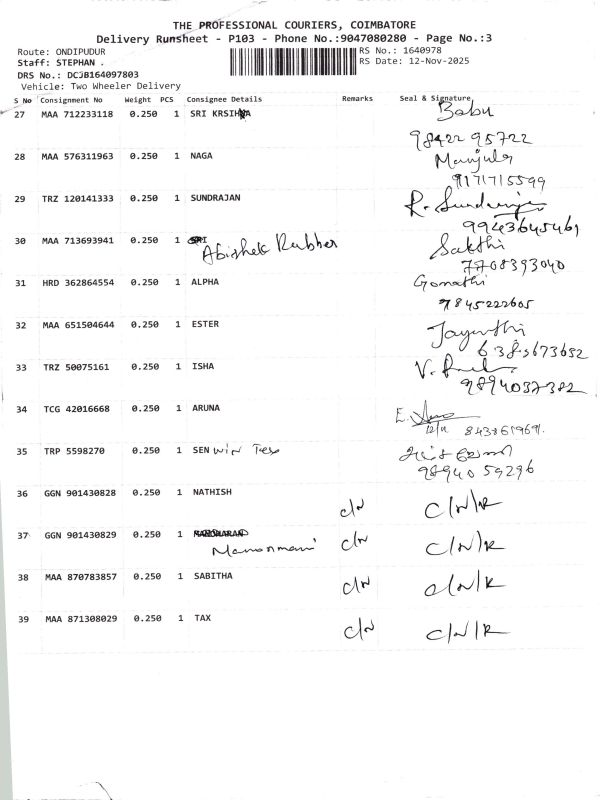 THE PROFESSIONAL COURIERS, COIMBATORE
Delivery Runsheet - P103 - Phone No.:9047080280 - Page No.:3
Route: ONDIPUDUR
Staff: STEPHAN .
DRS No.: DCJB164097803
Vehicle: Two Wheeler Delivery
RS No.: 1640978
RS Date: 12-Nov-2025
S No Consignment No Weight PCS Consignee Details Remarks Seal & Signature
27 MAA 712233118 0.250 1 SRI Babu
98422 95722
28 MAA 576311963 0.250 1 NAGA Manjula
9171715599
29 TRZ 120141333 0.250 1 SUNDRAJAN R.
9943645461
30 MAA 713693941 0.250 1 SRI Sakthi
Abishek Rubber 7708393040
31 HRD 362864554 0.250 1 ALPHA Gomathi
9845222605
32 MAA 651504644 0.250 1 ESTER Jayanthi
6385673652
33 TRZ 50075161 0.250 1 ISHA V.
9894037382
34 TCG 42016668 0.250 1 ARUNA E.
12/11
35 TRP 5598270 0.250 1 SEN win Tex
98940 59296
36 GGN 901430828 0.250 1 NATHISH c/N C/N/R
37 GGN 901430829 0.250 1 c/N C/N/R
Manonmani
38 MAA 870783857 0.250 1 SABITHA c/N C/N/R
39 MAA 871308029 0.250 1 TAX c/N C/N/R